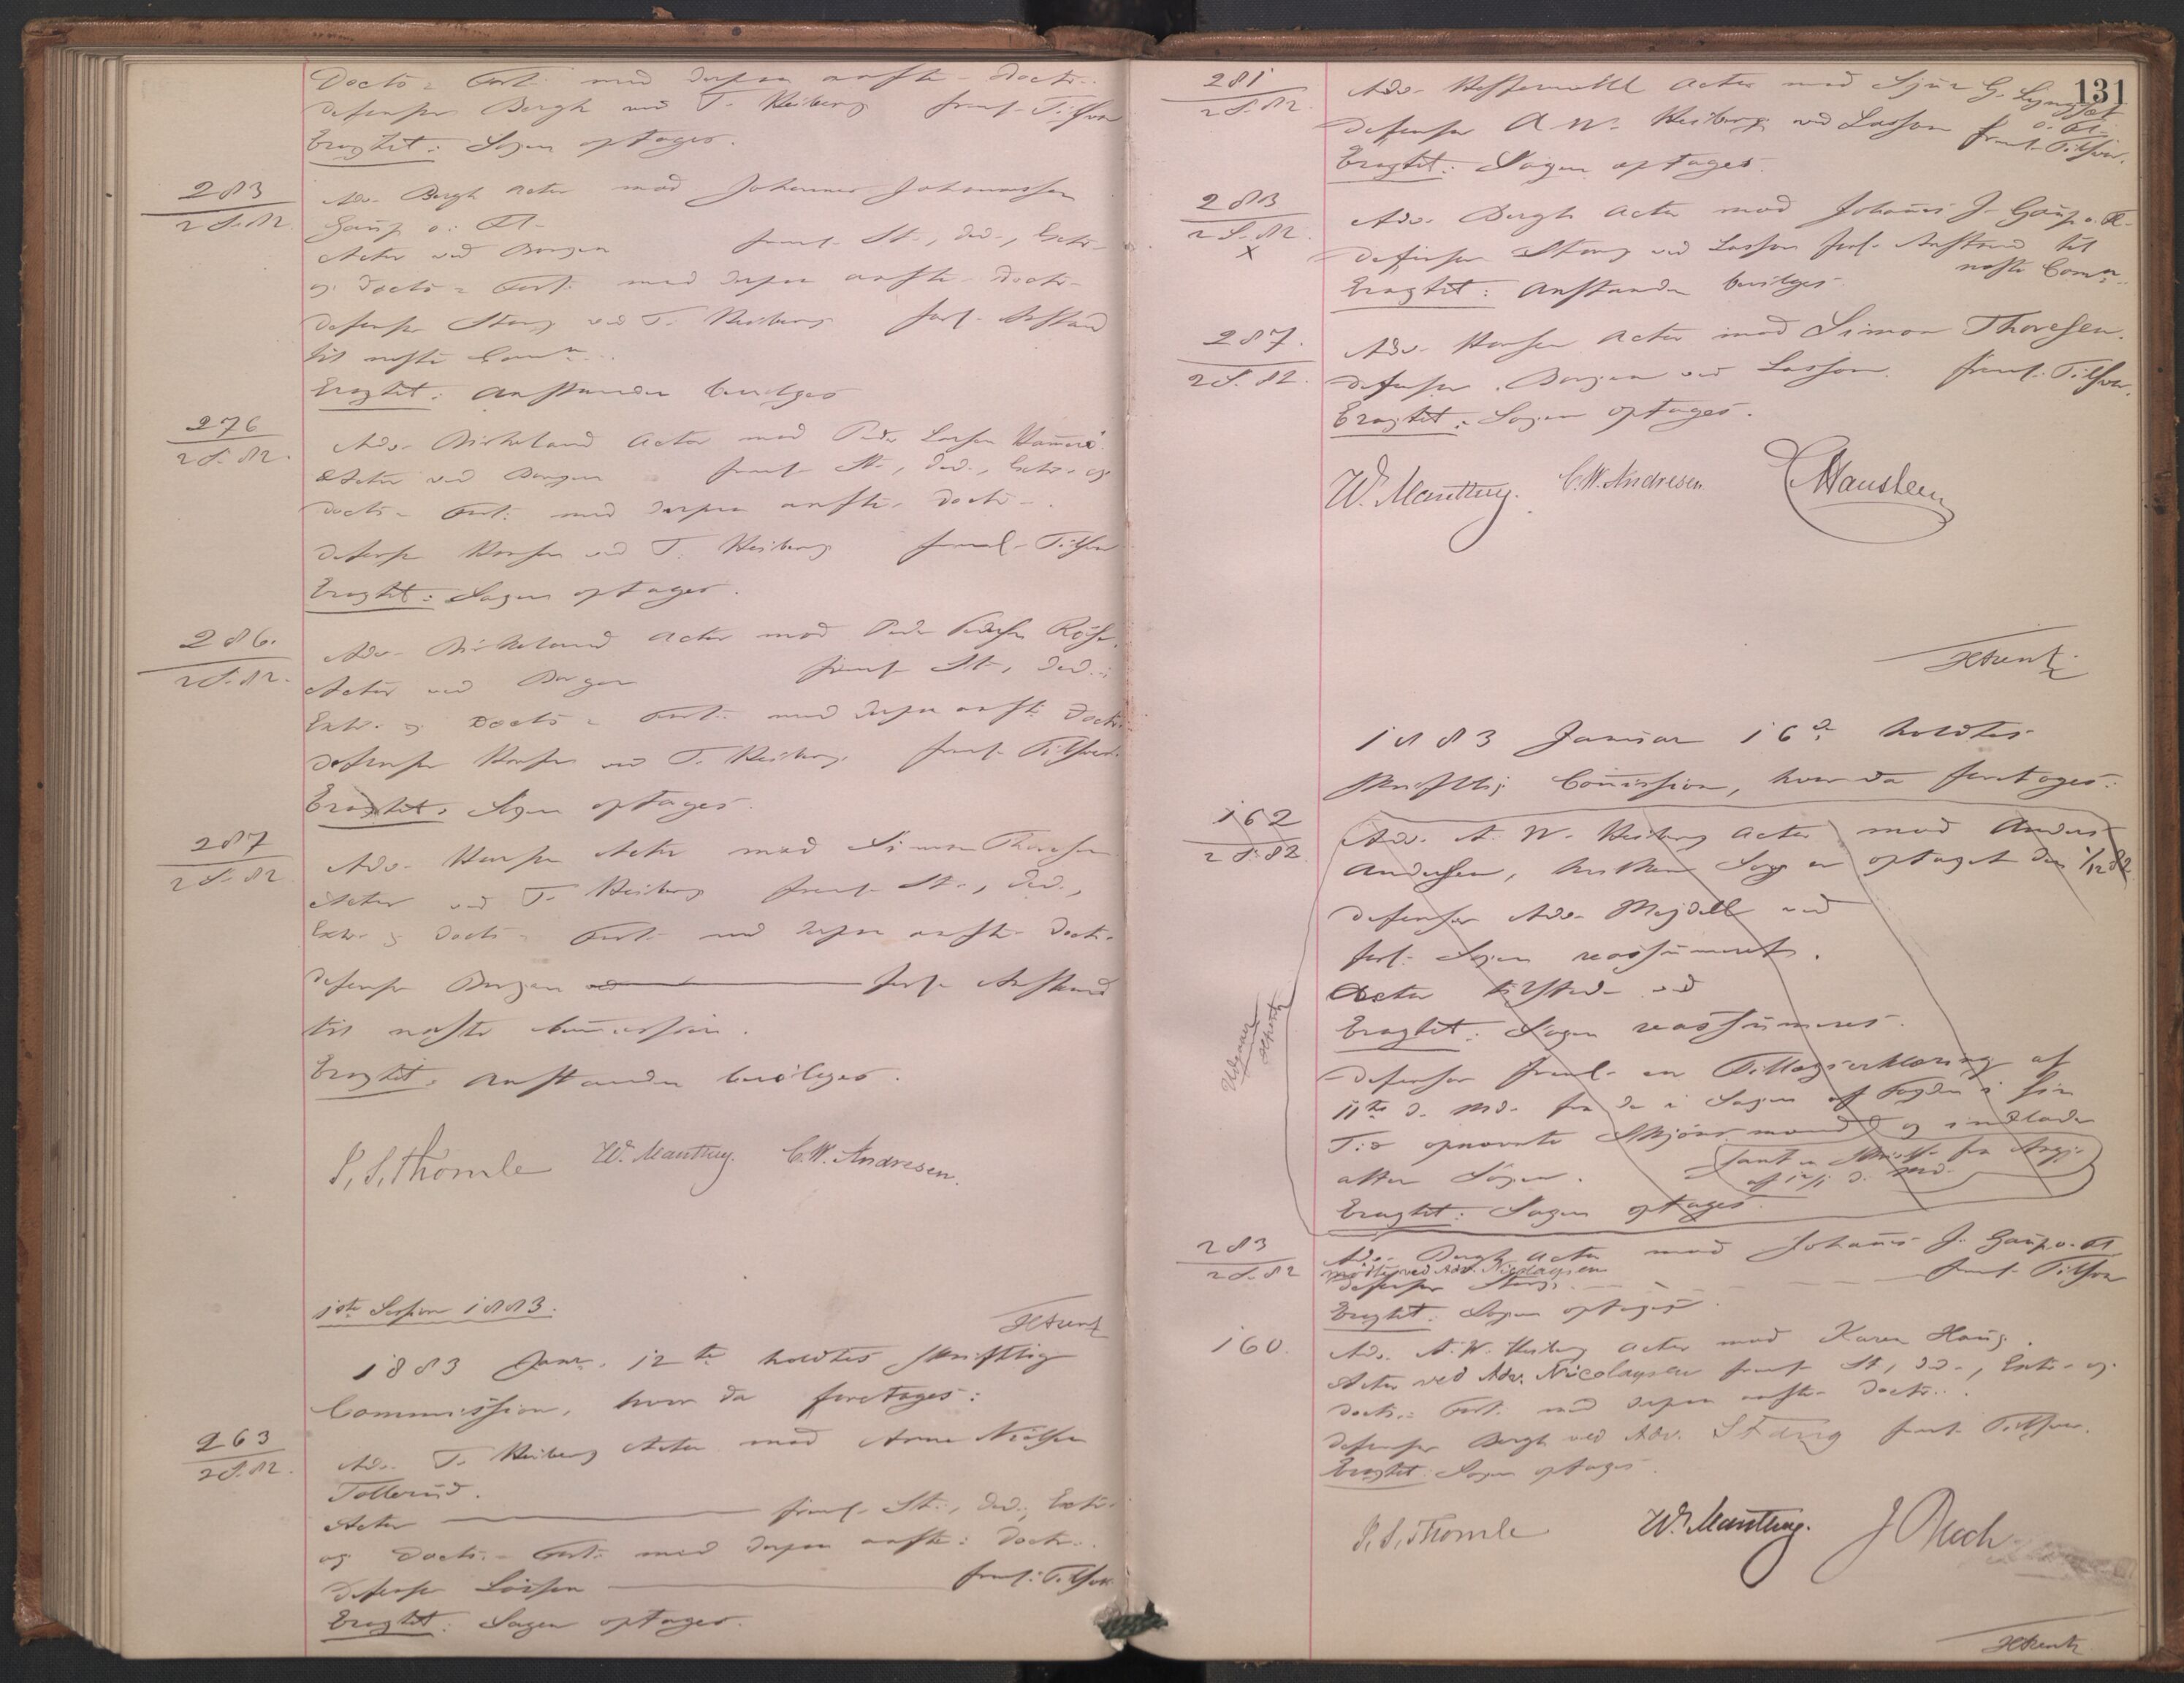 Doctr = Cort. med Dupra anste. Doctr..
Defensor Bergh ved T. Heiberg freml. Tilsvar
Eragtet: Sagen optages.
283
2 S. 82.
Adv. Bergh Actor mod Johannes Johannessen
Gaup o. Fl.
Actor ved Borgen freml. St., Ded., Extr.
og Doctr = Cort. med Dupra anste. Doctr.
Defensor Stang ved T. Heiberg forl. Anstand
til næste Comn..
Eragtet: Anstanden bevilges
276
2 S. 82.
Adv. Birkeland Actor mod Peder Larsen
Actor ved Borgen freml. St., Ded., Extr. og
Doctr = Cort. med Dupra anste. Doctr.
Defensor Hansen ved T. Heiberg freml. Tilsvar
Eragtet: Sagen optages.
286.
2 S. 82.
Adv. Birkeland Actor mod Peder Pedersen
Actor ved Borgen freml. St., Ded.,
Extr. og Doctr = Cort. med Dupra anste Doctr.
Defensor Hansen ved T. Heiberg. freml. Tilsvar.
Eragtet: Sagen optages.
287
2 S. 82
Adv. Hansen Actor mod Simon Thoresen
Actor ved T. Heiberg freml. St., Ded.,
Extr. og Doctr = Cort. med Dupra anste. Doctr.
Defensor Borgen ved forl. Anstand
til næste Commission.
Eragtet: Anstanden bevilges.
P. S. Thomle W. Manthey. C. W. Andresen.
1ste Session 1883.
1883 Janr. 12te holdtes skriftlig
Commission, hvor da foretoges:
263
2 S. 82.
Adv. T. Heiberg Actor mod Arne Nielsen
Tollerud.
Actor freml. St., Ded., Extr.
og Doctr. = Cort. med Dupra anste: Doctr..
Defensor Lasson freml. Tilsvar
Eragtet: Sagen optages.
131
281
2 S. 82.
Adv. Actor mod Sjur G.
o. Fl.
Defensor A. W. Heiberg ved Lasson freml. Tilsvar.
Eragtet: Sagen optages.
283
2 S. 82.
x
Adv. Bergh Actor mod Johans J. Gaup o. Fl.
Defensor Stang ved Lasson forl. Anstand til
næste Comn..
Eragtet: Anstanden bevilges.
287.
2 S. 82.
Adv. Hansen Actor mod Simon Thoresen.
Defensor Borgen ved Lasson freml. Tilsvar.
Eragtet: Sagen optages.
W. Manthey. C. W. Andresen. Hansteen
1883 Januar 16de holdtes
skriftlig Commission, hvor da foretoges:
162
2 S. 82
Adv. A. W. Heiberg Actor mod Anders
Andersen, hvilken Sag er optaget den 1/12 82
Defensor Adv. Mejdell ved
forl. Sagen reassumeret.
Actor tilstede ved
Eragtet: Sagen reassumeres.
Defensor freml. en Tillægserklæring af
11te d. Md. fra de i Sagen af Fogden i sin
Tid opnævnte Skjønsmænd og indlader
samt en fra
af d. Md.
atter Sagen.
Eragtet: Sagen optages
Udgaar
283
2 S. 82
Adv. Bergh Actor mod Johans J. Gaup o. Fl.
mødte ved Adv. Nicolaysen
Defensor Stang. freml. Tilsvar
Eragtet: Sagen optages.
160.
Adv. A. W. Heiberg Actor mod Karen Haug.
Actor ved Adv. Nicolaysen freml. St., Ded., Extr. og
Doctr. = Cort. med Dupra anste. Doctr..
Defensor Bergh ved Adv. Stang freml. Tilsvar.
Eragtet: Sagen optages.
P. S. Thomle W. Manthey.